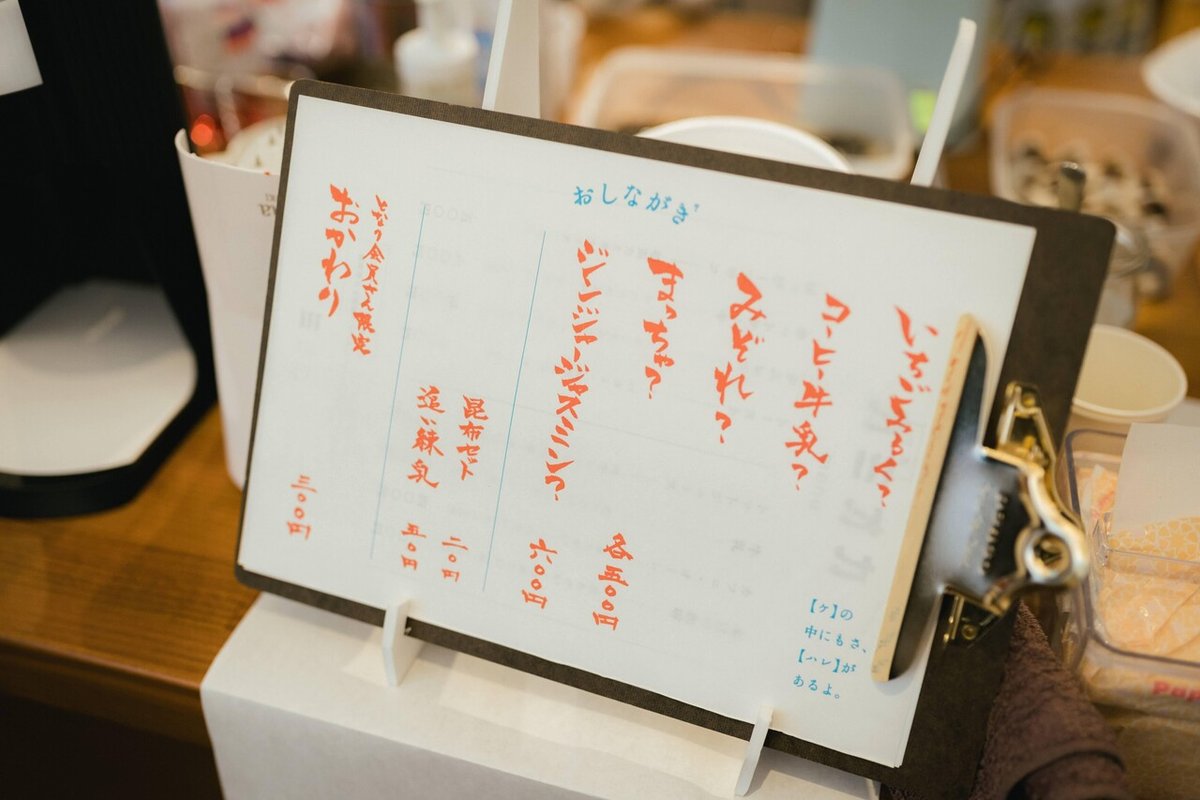 おしながき
いちごみるく？
コーヒー牛乳？
みぞれ？
まっちゃ？
各五〇〇円
ジンジャージャスミン？
六〇〇円
昆布セット
二〇円
追い練乳
五〇円
となり会員さん限定
おかわり
三〇〇円
【ケ】の
中にもさ、
【ハレ】が
あるよ。